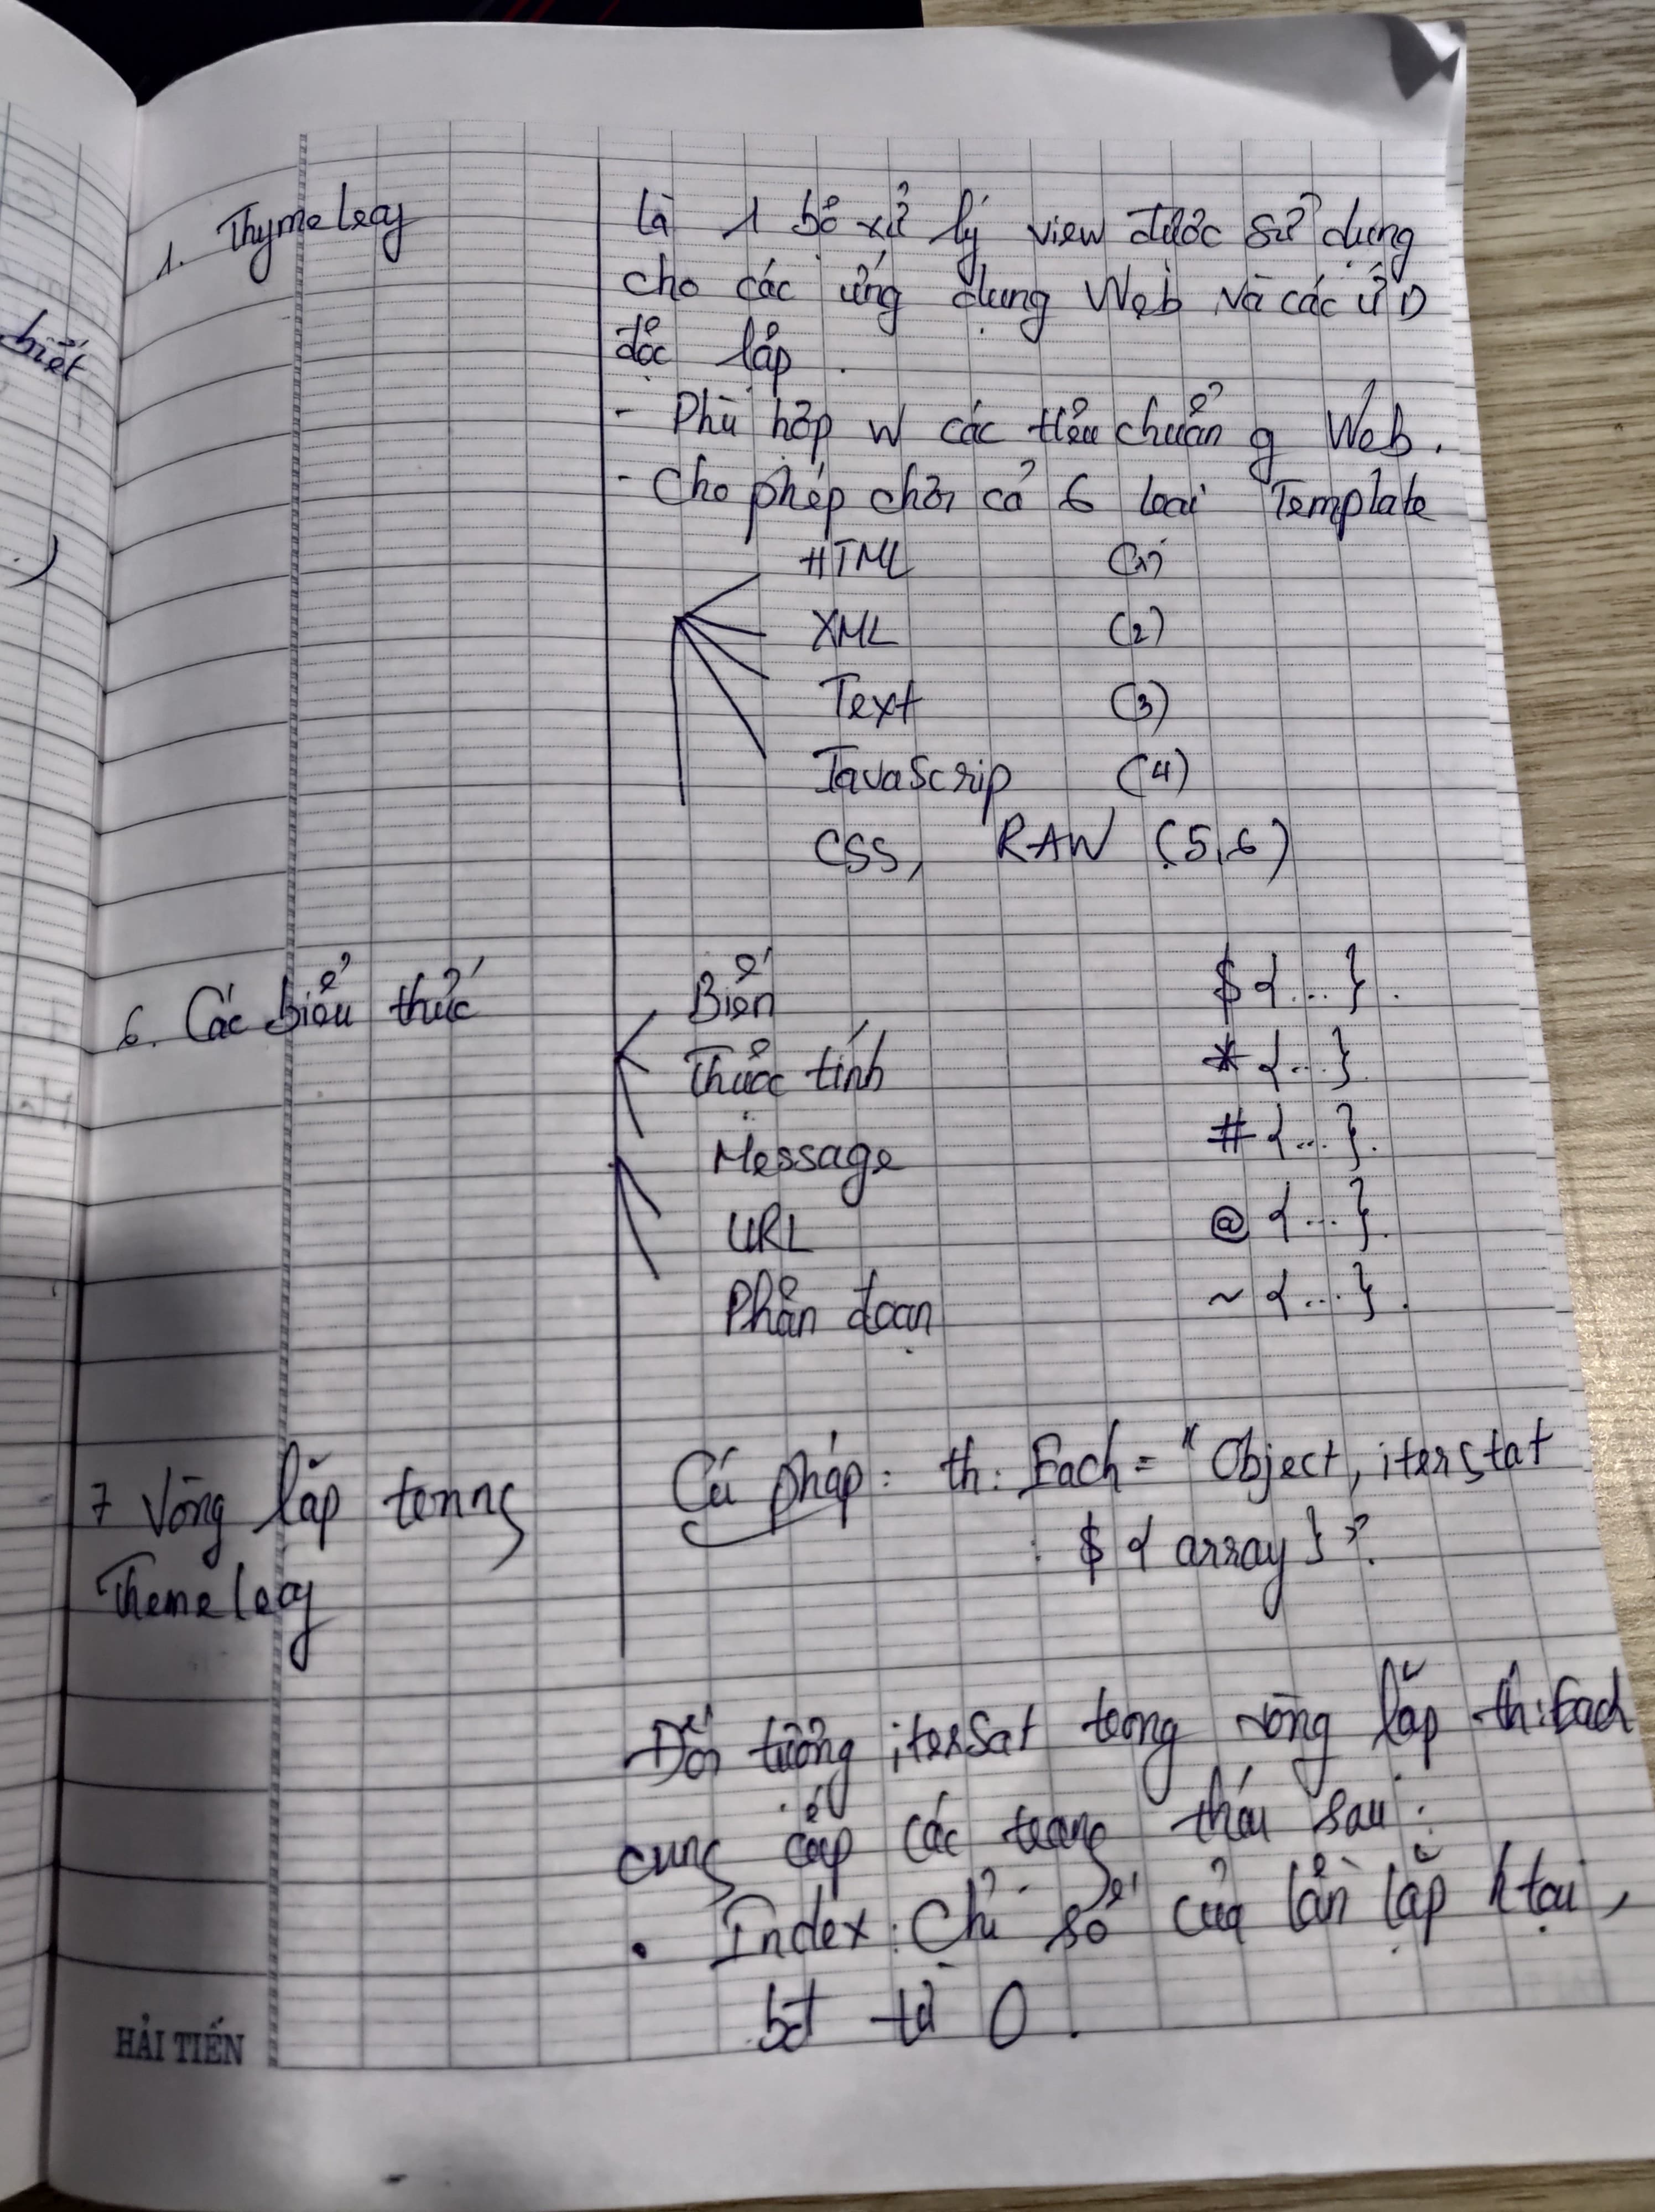 biết
)
1. Thymeleaf
Là 1 bộ xử lý view được sử dụng
cho các ứng dụng Web và các ƯD
độc lập.
- Phù hợp w các tiêu chuẩn g Web.
- Cho phép chơi cả 6 loại Template
HTML (1)
XML (2)
Text (3)
JavaScrip (4)
CSS, RAW (5,6)
6. Các biểu thức
Biến ${...}.
Thuộc tính *{...}.
Message #{...}.
URL @{...}.
Phân đoạn ~{...}.
7 Vòng lặp trong
Themeleaf
Cú pháp: th: Each = "Object, iterstat
: ${array}".
Đối tượng iterSat trong vòng lặp th:Each
cung cấp các trạng thái sau:
• Index: Chỉ số của lần lặp htại,
bđ từ 0.
HẢI TIẾN